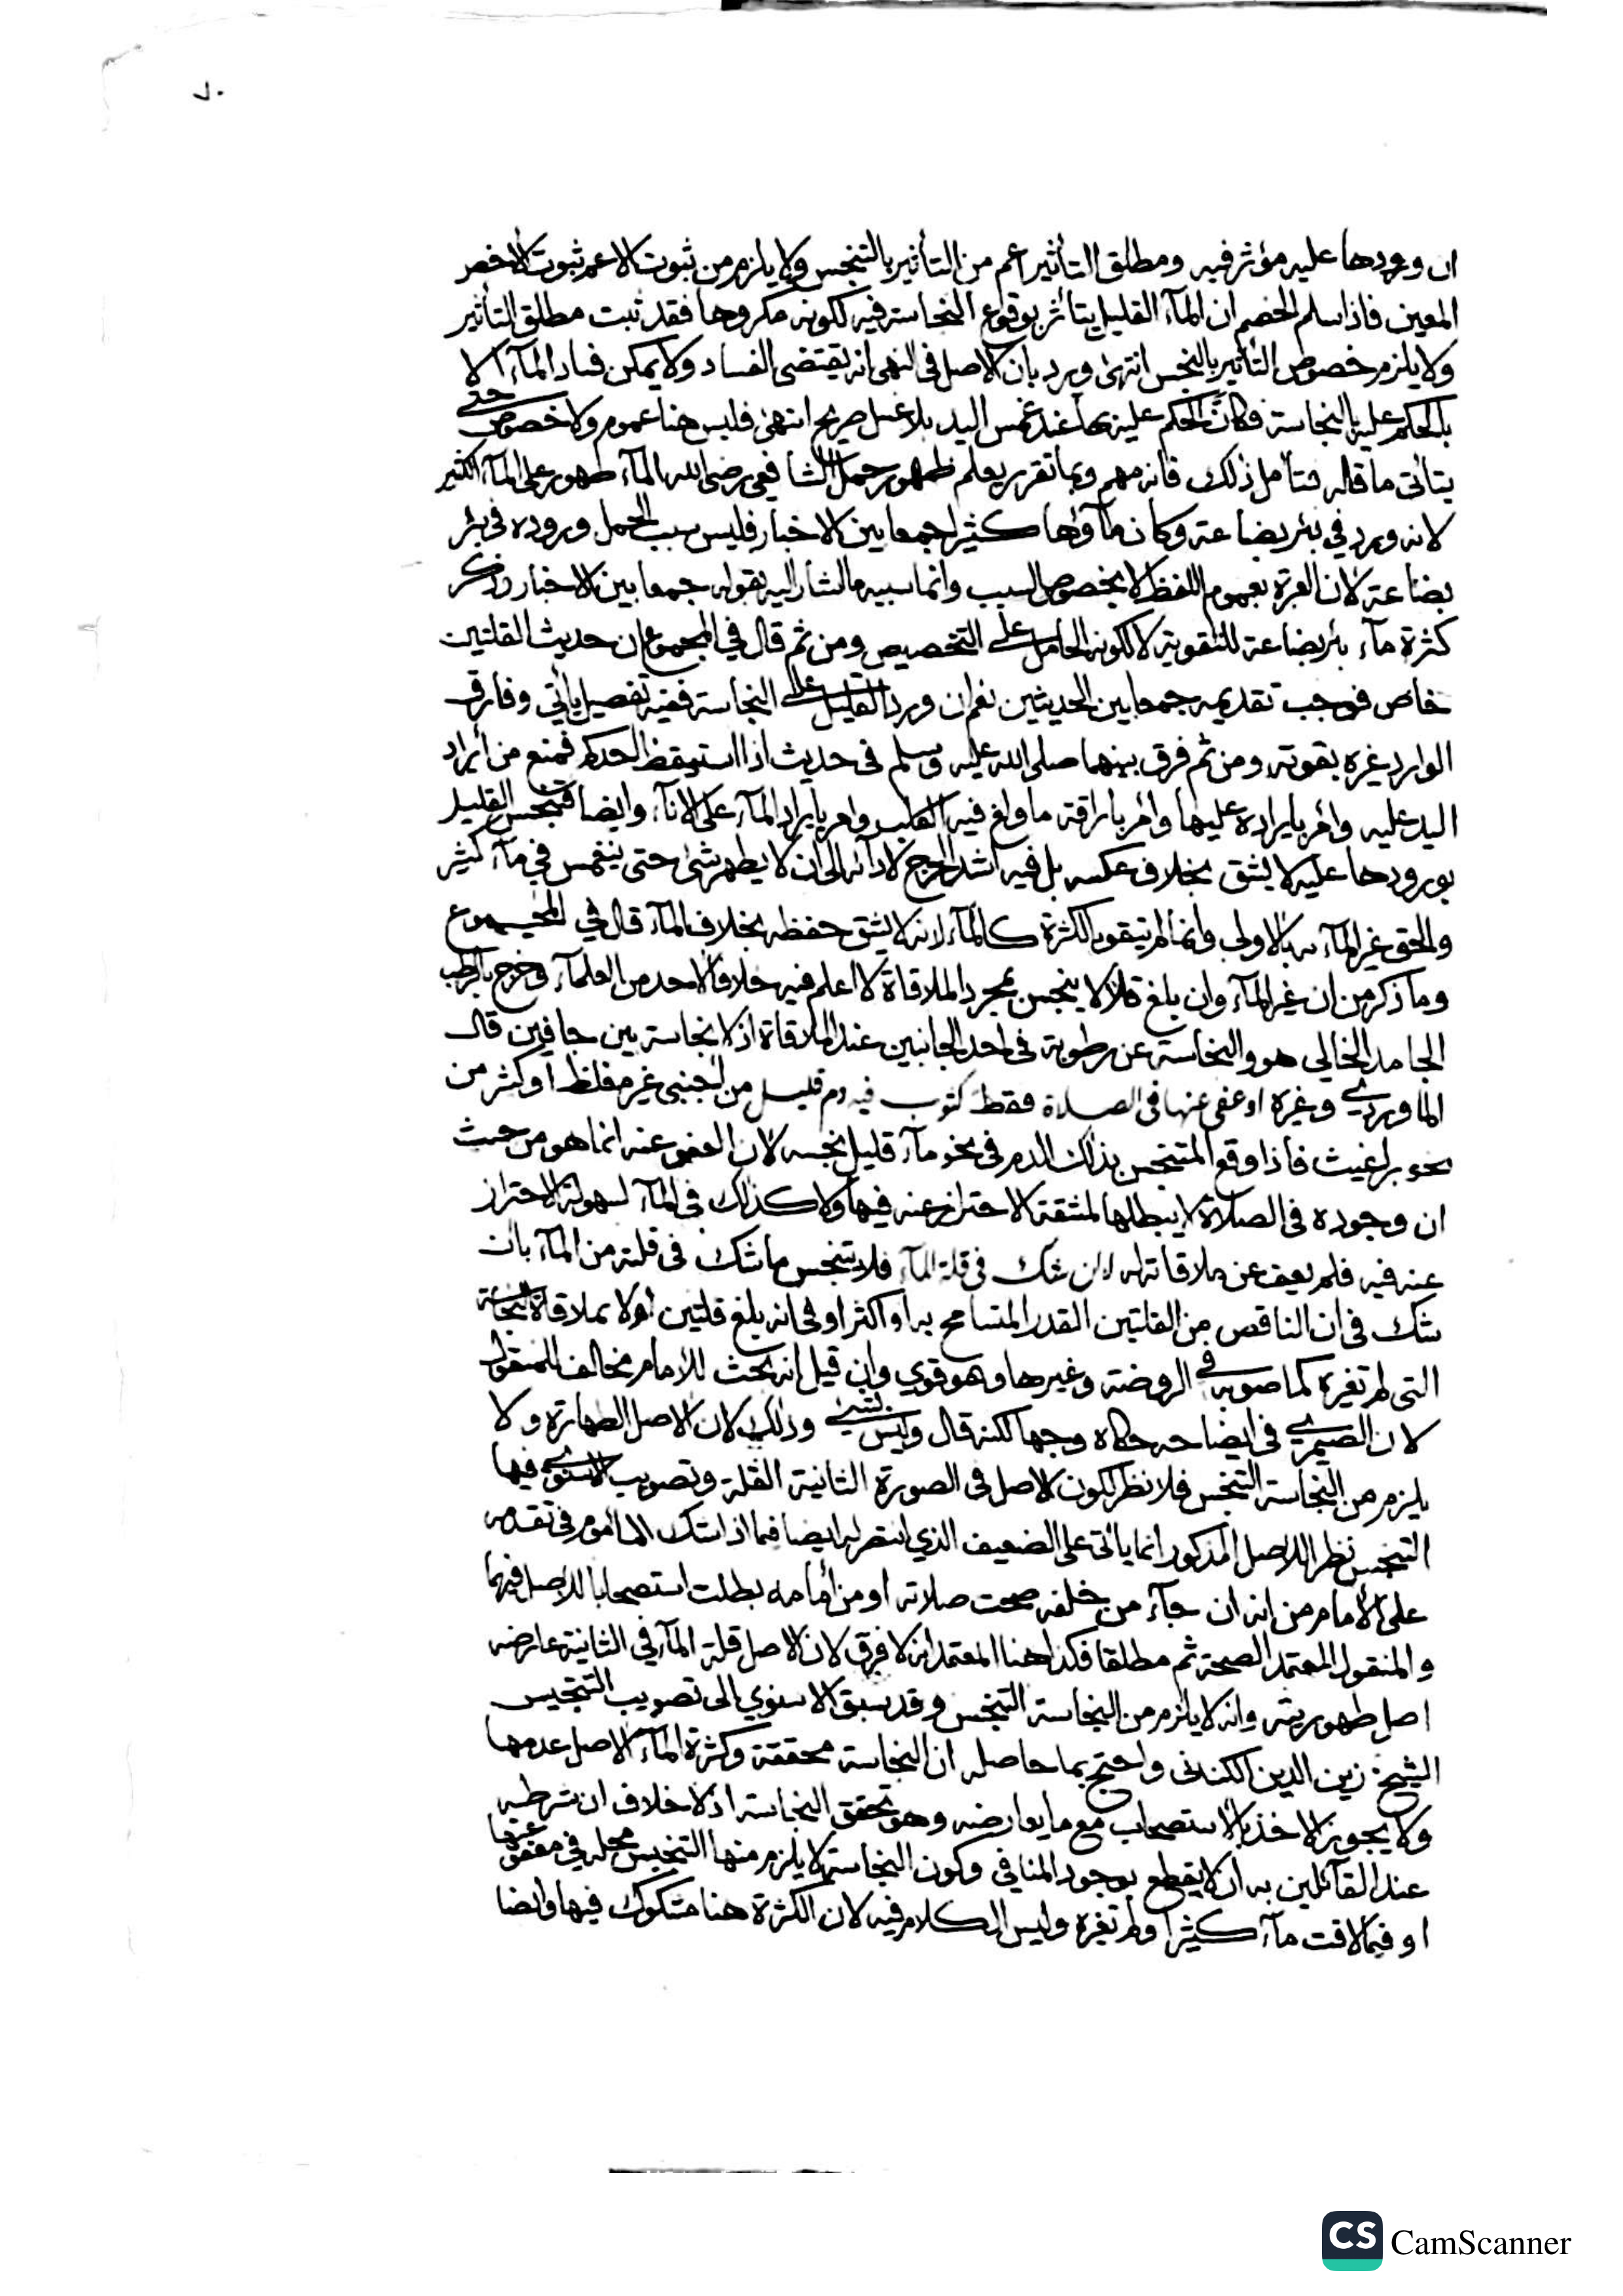 ٧٠
ان ورودها عليه مؤثر فيه ومطلق التأثير اعم من التأثير بالتنجس ولا يلزم من ثبوت الاعم ثبوت الاخص
المعين فاذا سلم الخصم ان المآء القليل يتاثر بوقوع النجاسة فيه لكونه مكروها فقد ثبت مطلق التأثير
ولا يلزم خصوص التأثير بالنجس انتهى ويرد بان الاصل في النهى انه يقتضى الفساد ولا يمكن فساد المآء الا
بالحكم عليه بالنجاسة فكان الحكم عليه بها عند غمس اليد بلا غسل صريح انتهى فليس هنا عموم ولا خصوص حتى
يتأتى ما قاله فتأمل ذلك فانه مهم وبما تقرر يعلم ظهور حمل الشافعي رضى الله المآء طهور على المآء الكثير
لانه ورد في بئر بضاعة وكان مآؤها كثيرا جمعا بين الاخبار فليس سبب الحمل وروده في بئر
بضاعة لان العبرة بعموم اللفظ لا بخصوص السبب وانما سببه ما اشار اليه بقوله جمعا بين الاخبار وذكر
كثرة مآء بئر بضاعة للتقوية لا لكونه الحامل على التخصيص ومن ثم قال في المجموع ان حديث القلتين
خاص فوجب تقديمه جمعا بين الحديثين نعم ان ورد القليل على النجاسة ففيه تفصيل يأتي وفارق
الوارد غيره بقوته ومن ثم فرق بينهما صلى الله عليه وسلم في حديث اذا استيقظ احدكم فمنع من ايراد
اليد عليه وامر بايراده عليها وامر باراقة ما ولغ فيه الكلب وامر بايراد المآء على الانآء وايضا فتنجس القليل
بورودها عليه لا يشق بخلاف عكسه بل فيه اشد الحرج لادآئه الى ان لا يطهر شئ حتى ينغمس في مآء كثير
والحق غير المآء به بالاولى وانما لم يتقو بالكثرة كالمآء لانه لا يشق حفظه بخلاف المآء قال في المجموع
وما ذكر من ان غير المآء وان بلغ قلالا ينجس بمجرد الملاقاة لا اعلم فيه خلافا لاحد من العلمآء وخرج بالرطب
الجامد الخالي هو والنجاسة عن رطوبة في احد الجانبين عند الملاقاة اذ لا نجاسة بين جافين قال
الماوردي وغيره او عفى عنها في الصلاة فقط كثوب فيه دم قليل من اجنبى غير مغلظ او كثر من
نحو برغيث فاذا وقع المتنجس بذلك الدم في نحو مآء قليل نجسه لان العفو عنه انما هو من حيث
ان وجوده في الصلاة لا يبطلها لمشقة الاحتراز عنه فيها ولا كذلك في المآء لسهولة الاحتراز
عنه فيه فلم يعف عن ملاقاته له لا ان شك في قلة المآء فلا يتنجس ما شك في قلته من المآء بان
شك في ان الناقص من القلتين القدر المتسامح به او اكثر او في انه بلغ قلتين اولا بملاقاة النجاسة
التى لم تغيره كما صوبه في الروضة وغيرها وهو قوي وان قيل انه بحث للامام مخالف للمنقول
لان الصيمري في ايضاحه حكاه وجها لكنه قال وليس بشئ وذلك لان الاصل الطهارة ولا
يلزم من النجاسة التنجس فلا نظر لكون الاصل في الصورة الثانية القلة وتصويب الاسنوي فيها
التنجس نظرا للاصل المذكور انما ياتى على الضعيف الذي انتصر له ايضا فيما اذا شك المأموم في تقدمه
على الامام من انه ان جآء من خلفه صحت صلاته او من أمامه بطلت استصحابا للاصل فيهما
والمنقول المعتمد الصحة ثم مطلقا فكذا هنا المعتمد انه لا فرق لان الاصل قلة المآء في الثانية عارضه
اصل طهوريته وانه لا يلزم من النجاسة التنجس وقد سبق الاسنوي الى تصويب التنجيس
الشيخ زين الدين الكتنانى واحتج بما حاصله ان النجاسة محققة وكثرة المآء الاصل عدمها
ولا يجوز الاخذ بالاستصحاب مع ما يعارضه وهو تحقق النجاسة اذ لا خلاف ان شرطه
عند القآئلين به ان لا يقطع بوجود المنافي وكون النجاسة لا يلزم منها التنجيس محله في معفو عنها
او فيما لاقت مآء كثيرا ولم تغيره وليس الكلام فيه لان الكثرة هنا مشكوك فيها وايضا
CS CamScanner